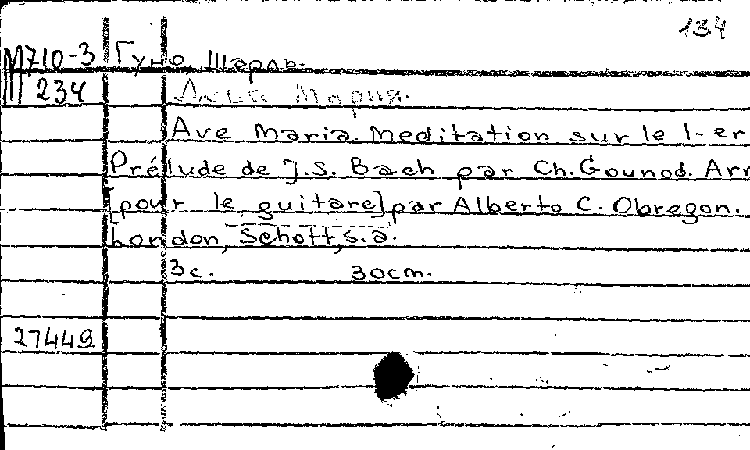 134
М710-3 Гуно, Шарль.
234 Аве Мария.
Ave Maria. Meditation sur le 1-er
Prélude de J.S. Bach par Ch. Gounod. Arr
[pour le guitare] par Alberto C. Obregon.
London, Schott, s.a.
3c. 30cm.
27449